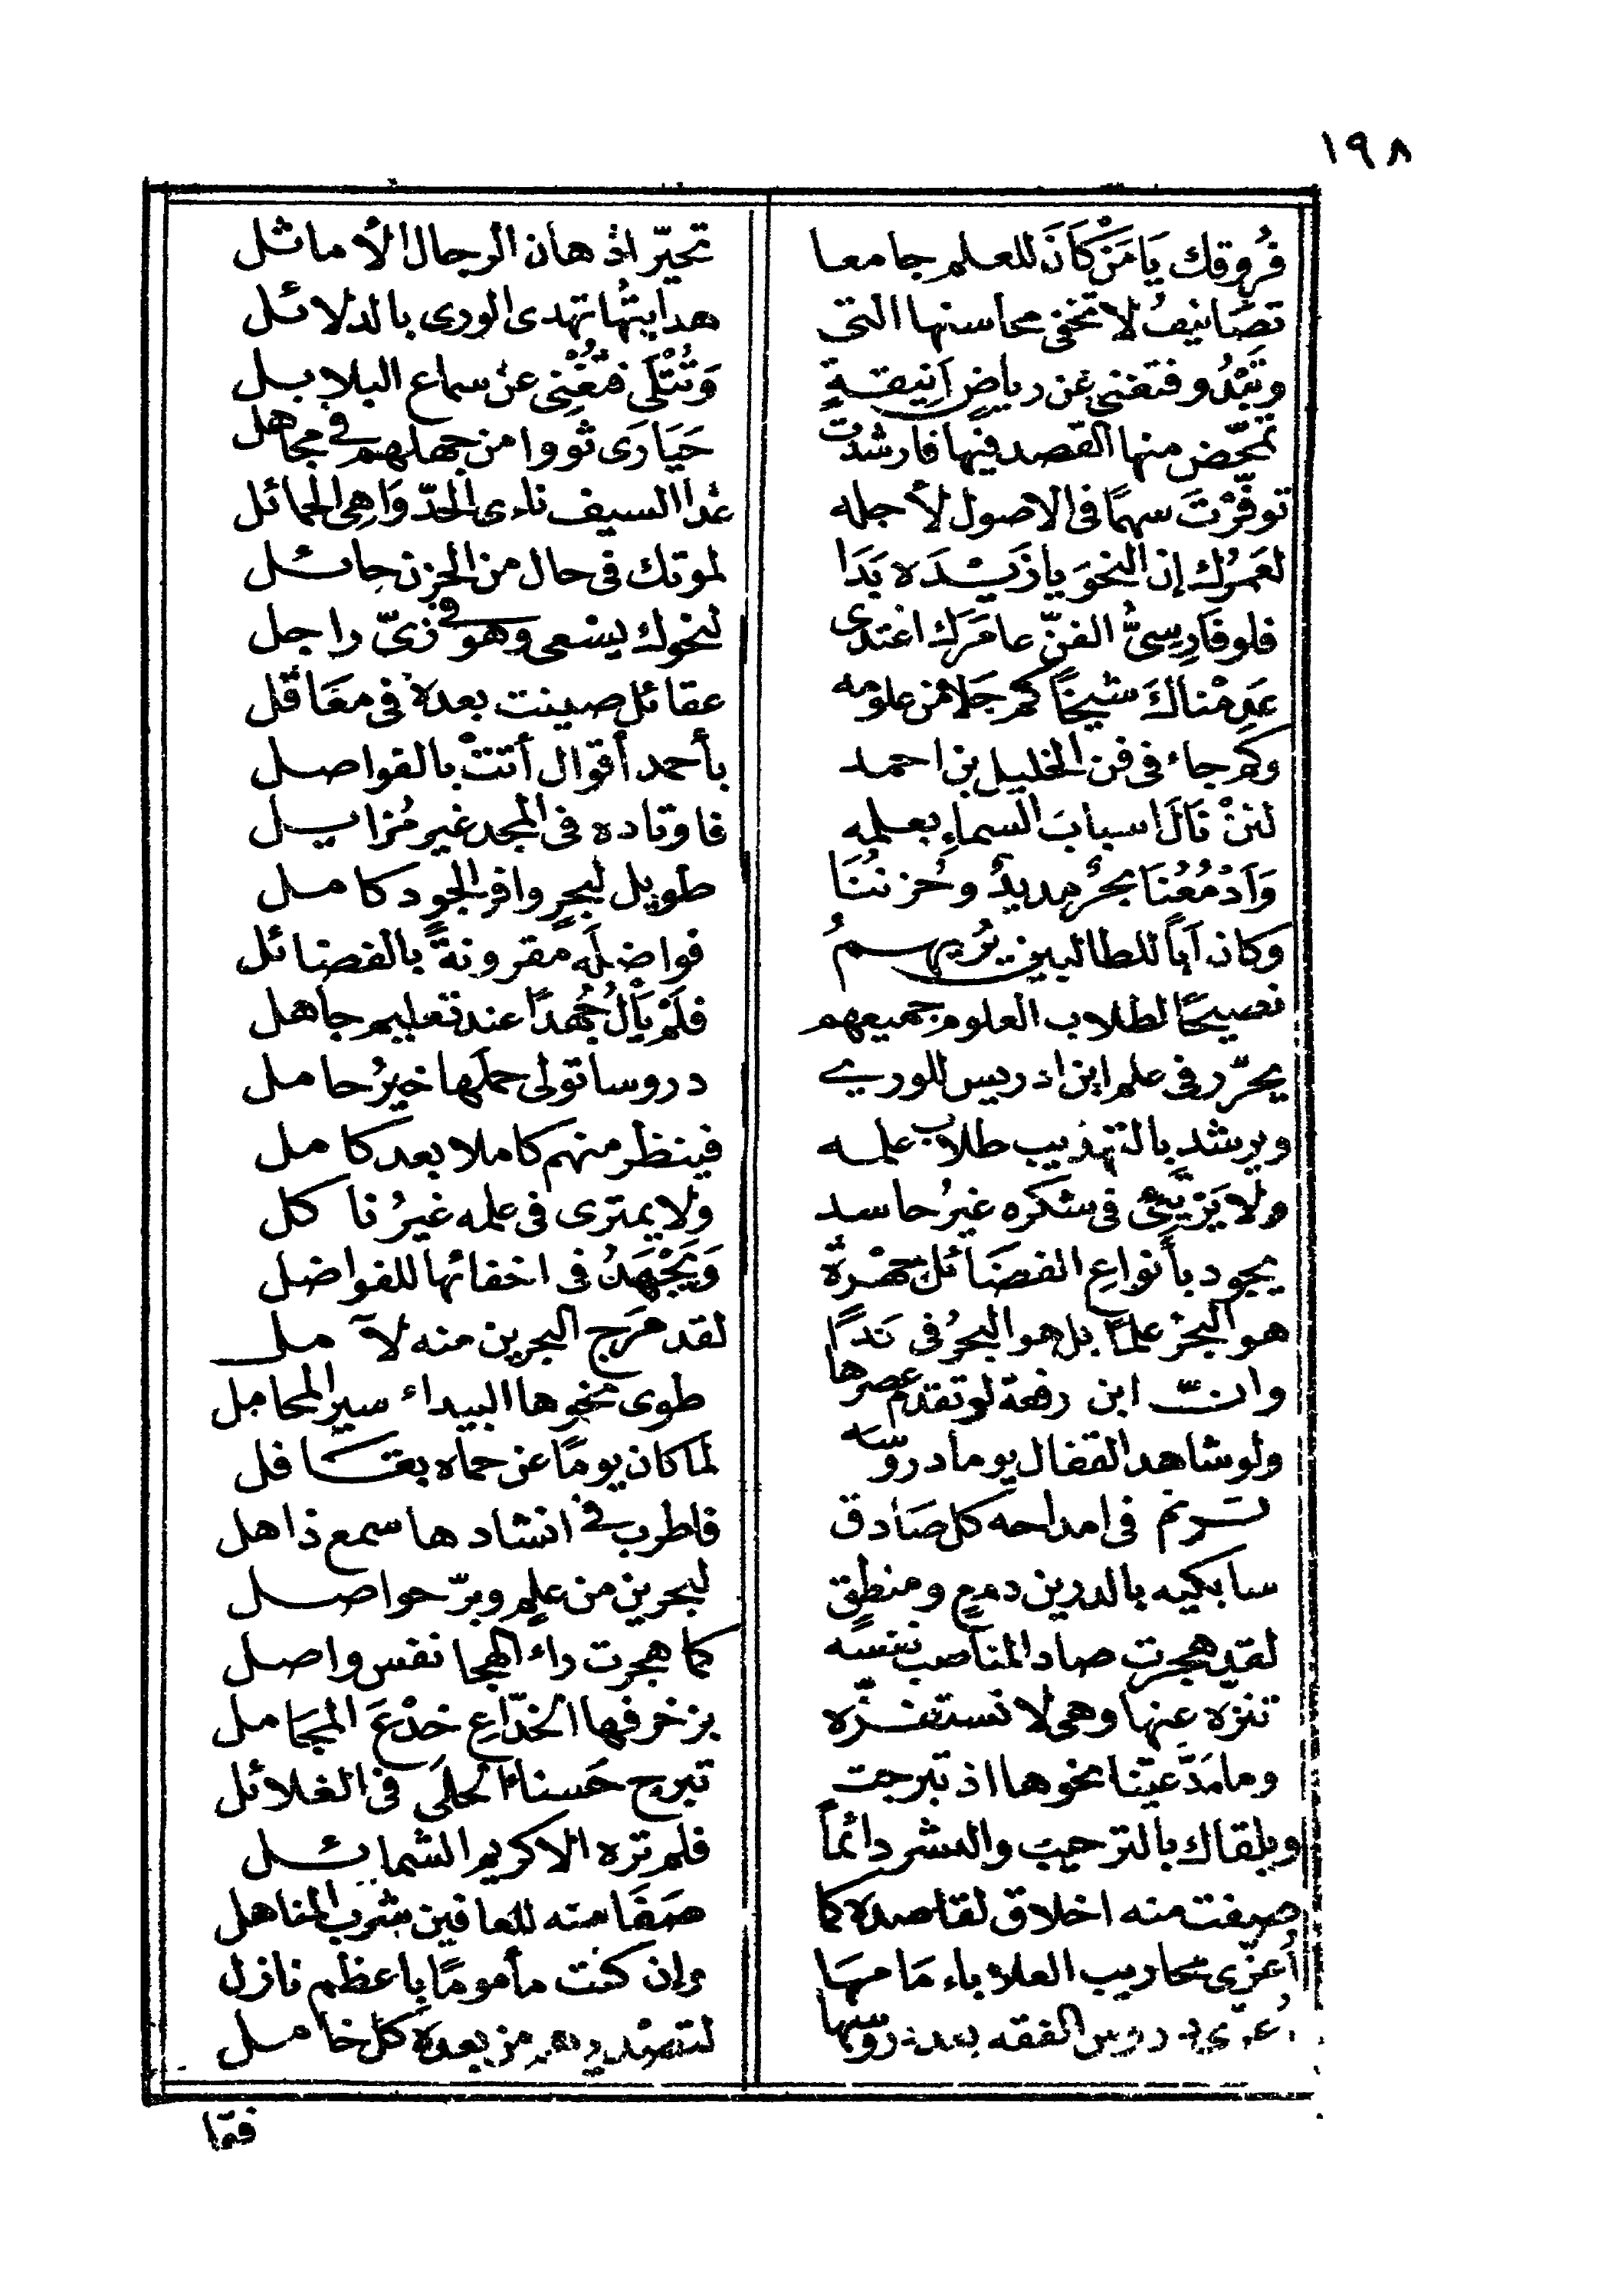 ١٩٨
فُروقك يَا مَنْ كَانَ للعلم جامعا تحيّر اذهان الرجال الأماثل
تصَانيفُ لا تخفى محاسنها التى هدايتُها تهدى الورى بالدلائل
وتَبْدُو فتغنى عن رياضٍ اَنيقةٍ وَتُتْلَى فتُغْنِى عن سماع البلابل
تمحّض منها القصد فيها فارشدت حَيَارَى ثووا من جهلهم فى مجاهل
توفّرْتَ سهمًا فى الاصول لأجله غدا السيف نادى الحدّ وَاهِى الحمائل
لعَمرُك إن النحوَ يا زَيْدَه بَدَا لموتك فى حال من الحزن حائل
فلو فَارِسىُّ الفنّ عامَرَك اغتدى لنحوك يسعى وهو فى زىّ راجل
عَدِمْناكَ شيخًا كم جَلا من علومه عقائل صينت بعده فى معَاقل
وكم جاء فى فن الخليل بن احمد بأحمد أقوال أتتْ بالفواصل
لئنْ نَالَ اسبابَ السماءِ بعلمه فاوتاده فى المجد غير مُزايل
وَاَدْمُعُنَا بحرٌ مديدٌ وحُزنُنَا طويل لبحرٍ وافر الجود كامل
وكان اَباً للطالبين يُريهمُ فواضلَه مقرونةً بالفضائل
نصيحًا لطلاب العلوم جميعهم فلَمْ يَألُ جُهدًا عند تعليم جاهل
يحرّر فى علم ابن ادريس للورى دروسا تولى حملَها خيرُ حامل
ويرشد بالتهذيب طلاب علمه فينظر منهم كاملا بعد كامل
ولا يَرْتَئِى فى شكره غيرُ حاسد ولا يمترى فى علمه غيرُ ناكل
يجود بأنواعِ الفضَائل جهْرةً وَيَجْهَدُ فى اخفائها للفواضل
هو البحرُ علمًا بل هو البحرُ فى نَدًا لقد مَرَج البحرين منه لآمل
وانّ ابن رفعة لو تقدم عصرها طوى نحوها البيداء سير المحامل
ولو شاهد القفال يوما دروسه لما كان يومًا عن حماه بقافل
ترنم فى امداحه كل صَادق فاطرب فى انشادها سمع ذاهل
سابكيه بالدرين دمعٍ ومنطقٍ لبحرين من علم وبرّ حواصل
لقد هجرت صاد المناصب نفسه كما هجرت راء الهجا نفس واصل
تنزه عنها وهى لا تستفزّه بزخرفها الخدّاعِ خدْعَ المجَامل
وما مَدّ عينا نحوها اذ تبرجت تبرج حَسناء الحلَى فى الغلائل
ويلقاك بالترحيب والبشر دائماً فلم تره الا كريم الشمائل
صفت منه اخلاق لقاصده كما صَفَا منه للعافين شرب المناهل
اُعزّى محاريب العلا باءمامها وإن كنت مأمومًا باعظم نازل
اُعزّى دروس الفقه بعد دروسها من بعده كل خامل
فقا